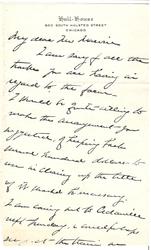 Hull-House
800 South Halsted Street
Chicago
My dear
I am sorry of all the
trouble you are having in
regard to the farm
I would be quite willing to
make the arrangement you
suggested, of keeping back
several hundred dollars to
use in clearing up the title
if it should be necessary.
I am coming out to Cedarville
next Sunday,